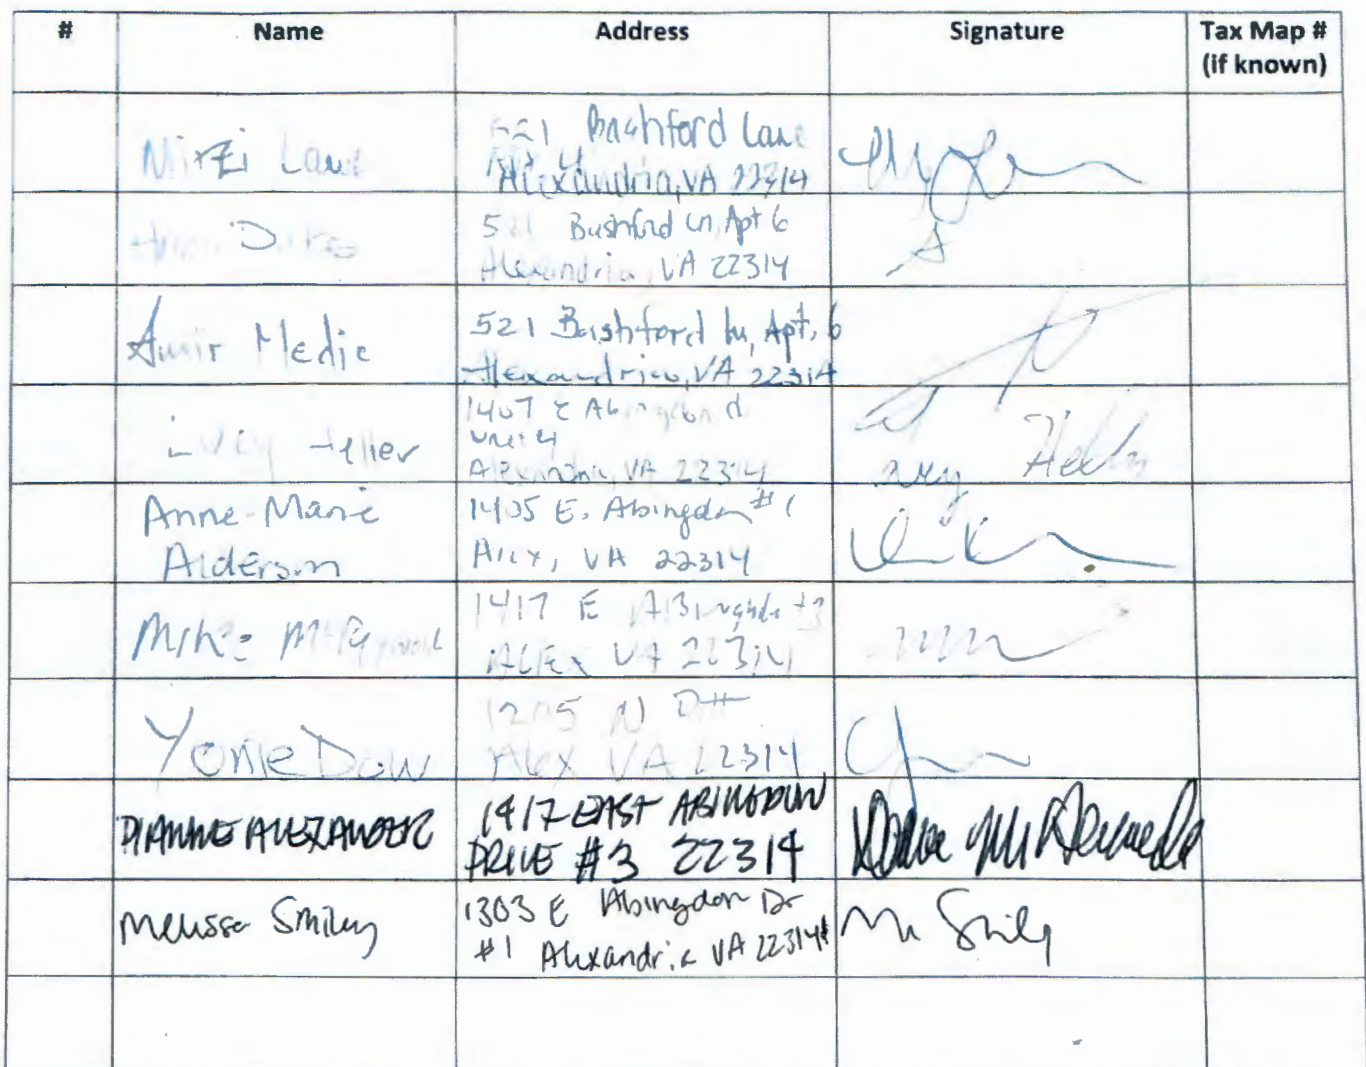 # Name Address Signature Tax Map #
(if known)
Mitzi Lane 521 Bashford Lane
Alexandria, VA 22314
521 Bashford Ln, Apt 6
Alexandria, VA 22314
Amir Medic 521 Bashford Ln, Apt. 6
Alexandria, VA 22314
Heller 1407 E Abingdon
Unit 4
Alexandria, VA 22314
Anne-Marie 1405 E. Abingdon #1
Alderson Alex, VA 22314
Mike 1417 E Abingdon #3
ALEX VA 22314
Yorke Dow 1205 N Pitt
Alex VA 22314
DIANNE ALEXANDER 1417 EAST ABINGDON
DRIVE #3 22314
Melissa Smiley 1303 E Abingdon Dr
#1 Alexandria VA 22314